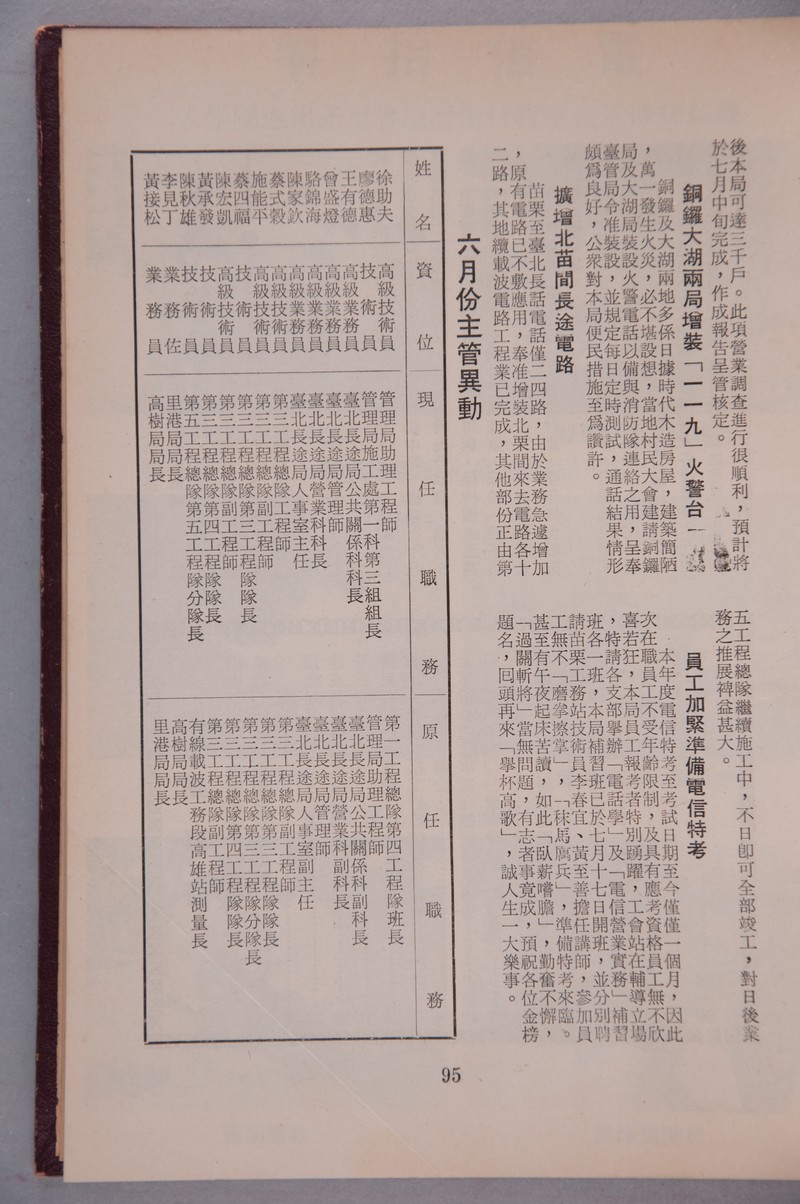 後本局可達三千戶。此項營業調查進行很順利,預計將
於七月中旬完成,作成報告呈管核定。
銅鑼大湖兩局增裝「一一九」火警台
銅鑼及大湖兩地多係日據時代木造房屋,建築簡陋
,萬一發生火災,必不堪設想,當地村民大會建請銅鑼
局及大湖局裝設火警電話以備與消防隊連絡之用,呈奉
臺管局令准裝設,並規定每日定時測試,通話結果情形
頗為良好,公衆對本局便民措施至為讚許。
擴增北苗間長途電路
苗栗至臺北長話電話僅二四路,由於業務急遽增加
,原有電路已不敷應用,奉准增裝北栗間來去電路各十
二路,其地纜載波電路工程業已完成,其他部份正由第
五工程總隊繼續施工中,不日卽可全部竣工,對日後業
務之推展裨益甚大。
員工加緊準備電信特考
本年度電信特考至考試日期至今僅僅一個月,因此
次在職員工不受年齡限制,及具有應考資格員工無不欣
喜若狂,本局員工報考者特別踴躍,工會站在輔導立場
,特請各支部舉辦「電話學」及「電信營業實務」補習
班各一班,本局補習班已於七月十七日開班,並分別聘
請苗栗工務站技術員李春宜、黃至善擔任講師,參加員
工無不「磨拳擦掌」,「秣馬厲兵」,準備特考來臨。
甚至有午夜起床苦讀,如此「臥薪嚐膽」,勤奮不懈,
「過關斬將」當無問題,有志者事竟成,預祝各位金榜
題名,囘頭再來「擧杯高歌」,誠人生一大樂事。
六月份主管異動
姓名 資位 現任職務 原任職務
徐助夫 高級技術員 管理局助理工程師 第一工程總隊第四工程隊班長
廖德惠 技術員 管理局施工處第一科第三組組長 管理局助理工程師
王有德 高級業務員 臺北長途局公共關係科科長 臺北長途局公共關係科副科長
曾盛燈 高級業務員 臺北長途局管理師 臺北長途局營業科副科長
駱錦海 高級業務員 臺北長途局營業科科長 臺北長途局管理師
陳家欽 高級業務員 臺北長途局人事室主任 臺北長途局人事室副主任
蔡式穀 高級技術員 第三工程總隊工程師 第三工程總隊副工程師
施能平 高級技術員 第三工程總隊副工程師 第三工程總隊第三工程隊隊長
蔡四福 技術員 第三工程總隊第三工程隊隊長 第三工程總隊第三工程隊分隊長
陳宏凱 高級技術員 第三工程總隊副工程師 第三工程總隊第四工程隊隊長
黃承發 技術員 第三工程總隊第四工程隊隊長 第三工程總隊副工程師
陳秋雄 技術員 第五工程總隊第五工程隊分隊長 有線載波工務段高雄站測量長
李見丁 業務佐 里港局局長 高樹局局長
黃接松 業務員 高樹局局長 里港局局長
95